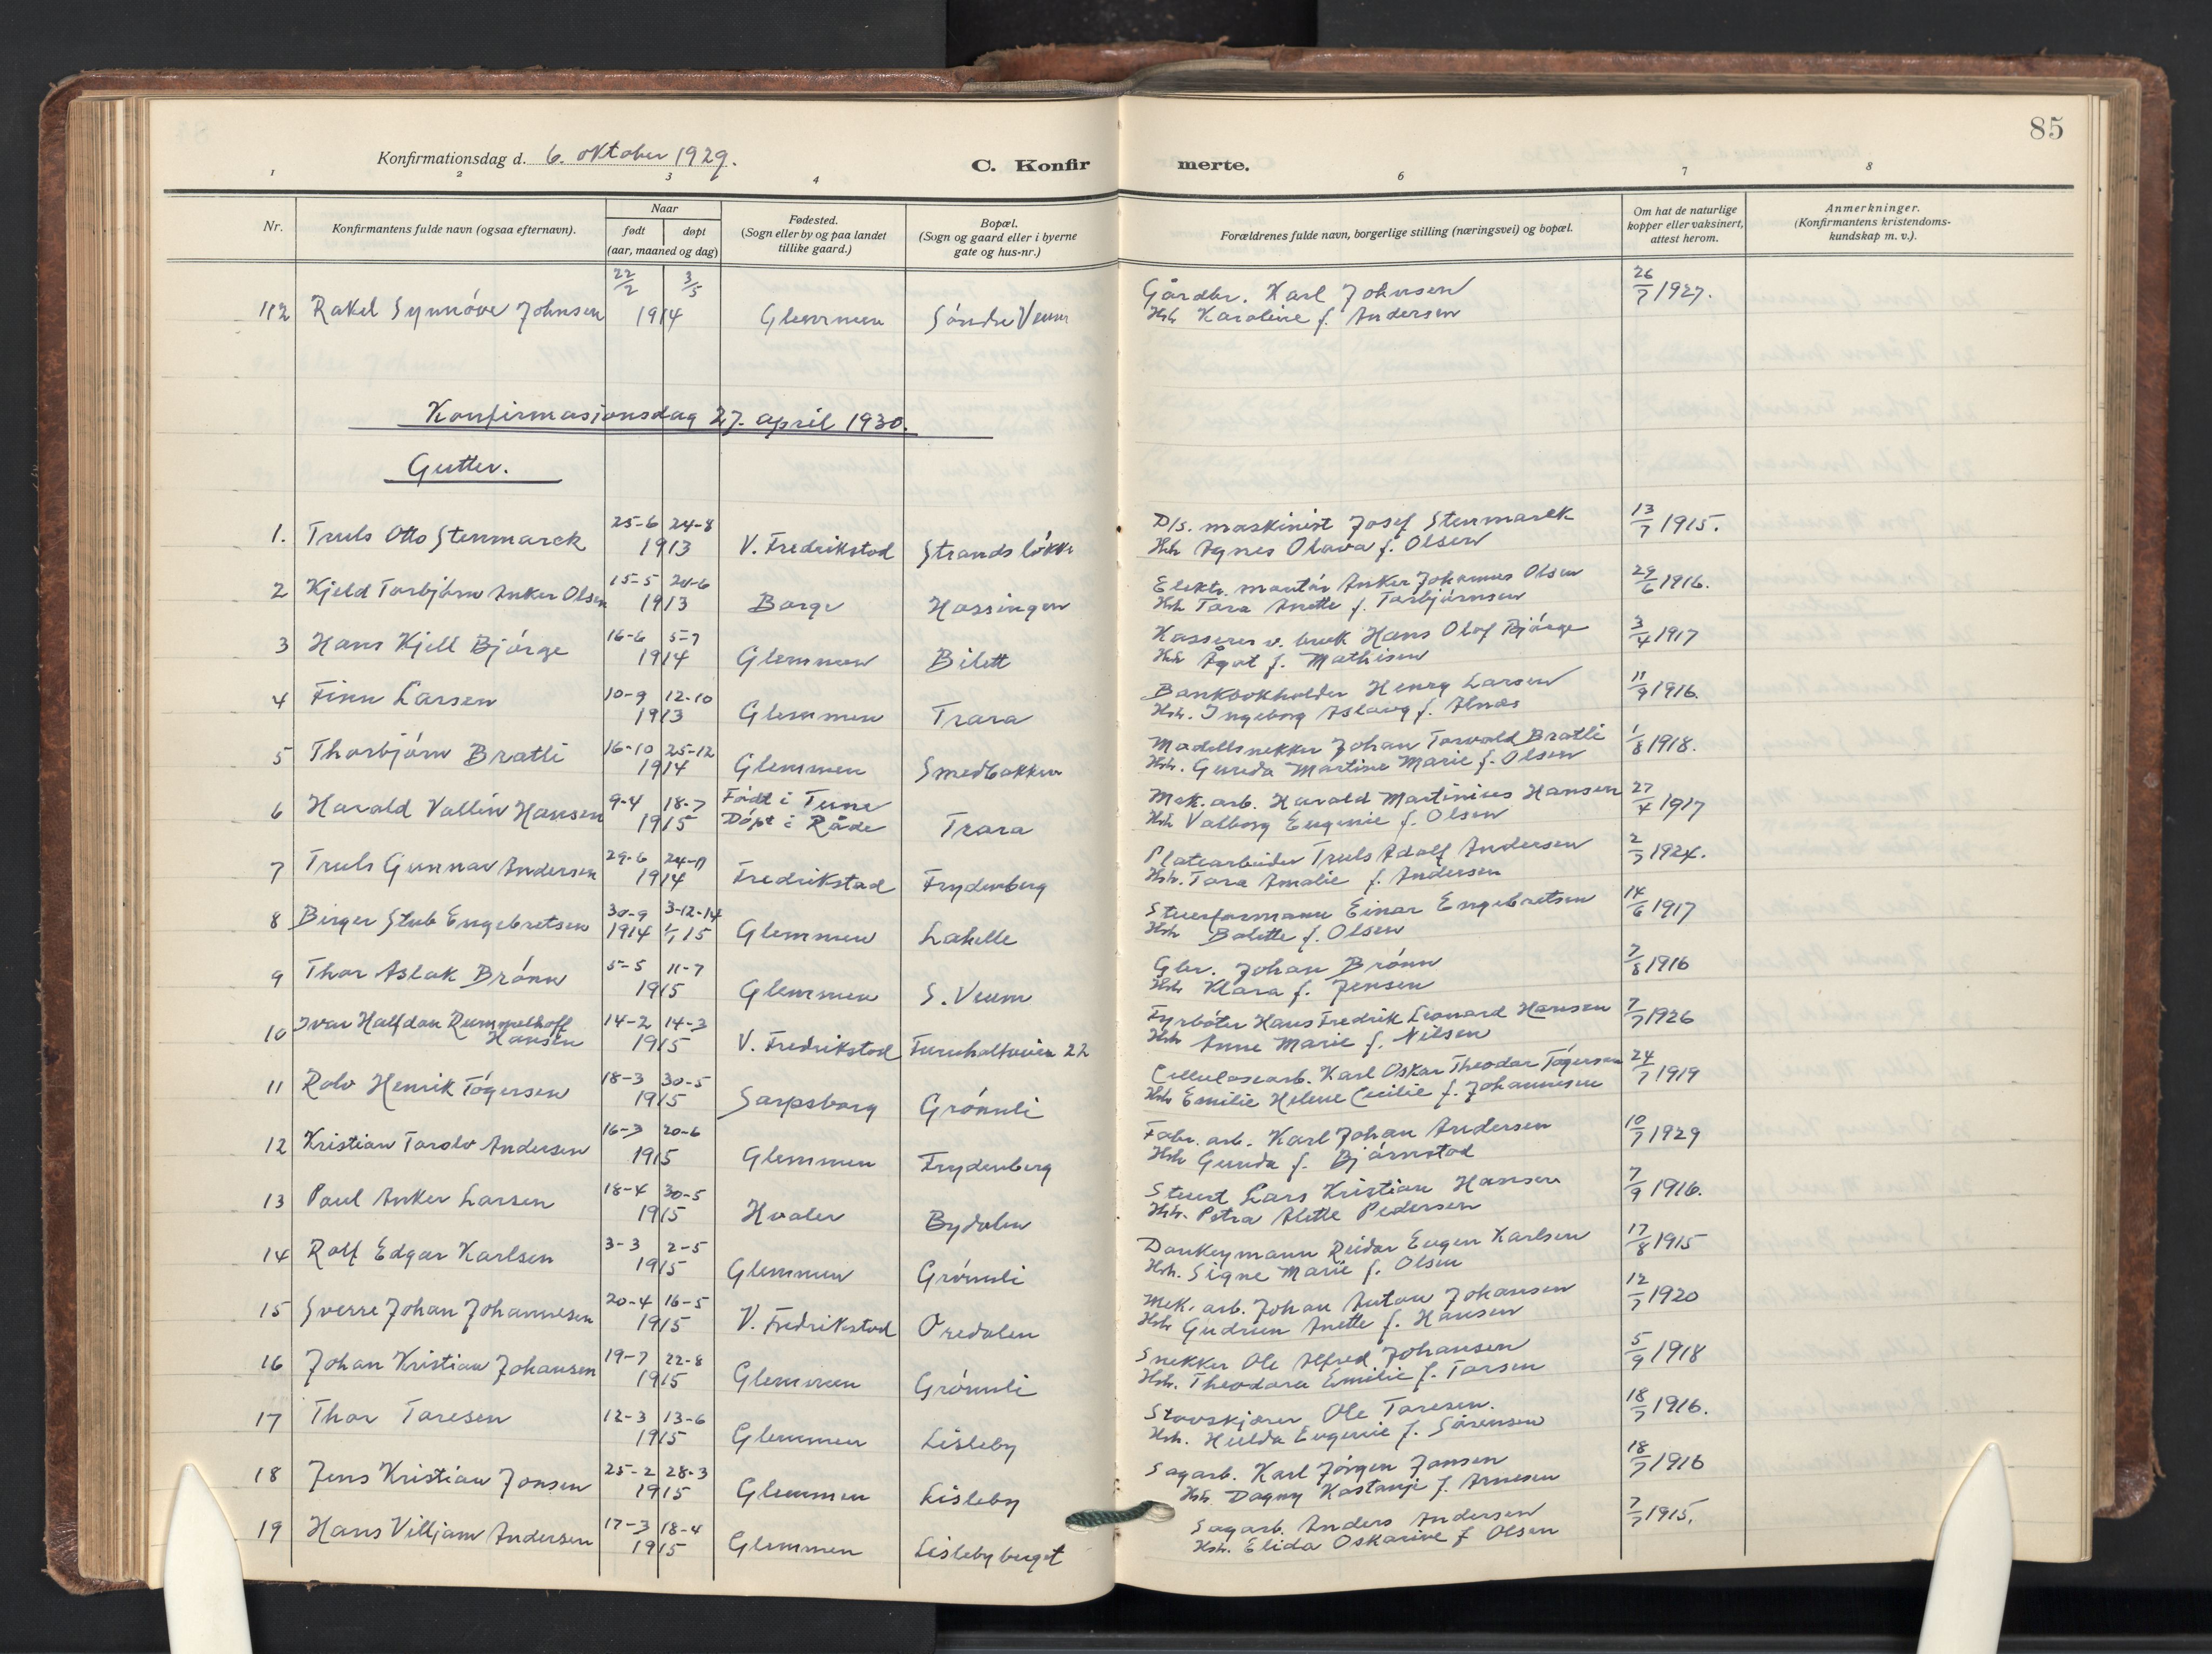 85
Konfirmationsdag d. 6. oktober 1929.
C. Konfir merte.
1 2 3 4 6 7 8
Nr. Konfirmantens fulde navn (ogsaa efternavn). Naar født døpt (aar, maaned og dag) Fødested. (Sogn eller by og paa landet tillike gaard.) Bopæl. (Sogn og gaard eller i byerne gate og hus-nr.) Forældrenes fulde navn, borgerlige stilling (næringsvei) og bopæl. Om hat de naturlige kopper eller vaksinert, attest herom. Anmerkninger. (Konfirmantens kristendoms-kundskap m. v.).
22/2 3/5 Gårdbr. Karl Johnsen 26/7 1927.
112 Rakel Synnöve Johnsen 1914 Glemmen Söndre Veum Hstr Karoline f. Andersen
Konfirmasjonsdag 27. april 1930.
Gutter.
25-6 24-8 D/s. maskinist Josef Stenmarck 13/7 1915.
1. Truls Otto Stenmarck 1913 V. Fredrikstad Strandsløkk Hstr Agnes Olava f. Olsen
15-5 20-6 Elektr. montör Anker Johannes Olsen 29/6 1916.
2 Kjeld Torbjörn Anker Olsen 1913 Borge Hassingen Hstr Tora Anette f. Torbjörnsen
16-6 5-7 Kasserer v. bruk Hans Olaf Björge 3/4 1917
3 Hans Kjell Björge 1914 Glemmen Bilett Hstr Ågot f. Mathisen
10-9 12-10 Bankbokholder Henry Larsen 11/9 1916.
4 Finn Larsen 1913 Glemmen Trara Hstr. Ingeborg Aslaug f. Alnæs
16-10 25-12 Modellsnekker Johan Torvald Bratli 1/8 1918.
5 Thorbjörn Bratli 1914 Glemmen Smedbakken Hstr. Gunda Martine Marie f. Olsen
9-4 18-7 Født i Tune Mek. arb. Harald Martinius Hansen 27/4 1917
6 Harald Vallin Hansen 1915 Döpt i Råde Trara Hstr Valborg Eugenie f. Olsen
29-6 24-11 Platearbeider Truls Adolf Andersen 2/7 1924.
7 Truls Gunnar Andersen 1914 Fredrikstad Frydenberg Hstr. Tora Amalie f. Andersen
30-9 3-12-14 Stuerformann Einar Engebretsen 14/6 1917
8 Birger Stub Engebretsen 1914 1/1 15 Glemmen Lahelle Hstr Bolette f. Olsen
5-5 11-7 Gbr. Johan Brönn 7/8 1916
9 Thor Aslak Brönn 1915 Glemmen S. Veum Hstr Klara f. Jensen
Ivar Halfdan Rummelhoff 14-2 14-3 Fyrböter Hans Fredrik Leonard Hansen 7/7 1926
10 Hansen 1915 V. Fredrikstad 22 Hstr Anne Marie f. Nilsen
18-3 30-5 Cellulosearb. Karl Oskar Theodor Tögersen 24/7 1919
11 Rolv Henrik Tögersen 1915 Sarpsborg Grönli Hstr Emilie Helene Cecilie f. Johannesen
16-3 20-6 Fabr. arb. Karl Johan Andersen 10/7 1929
12 Kristian Torolv Andersen 1915 Glemmen Frydenberg Hstr Gunda f. Björnstad
18-4 30-5 Stuert Lars Kristian Hansen 7/9 1916.
13 Paul Anker Larsen 1915 Hvaler Bydalen Hstr. Petra Alette Pedersen
3-3 2-5 Donkeymann Reidar Eugen Karlsen 17/8 1915
14 Rolf Edgar Karlsen 1915 Glemmen Grönli Hstr. Signe Marie f. Olsen
20-4 16-5 Mek. arb. Johan Anton Johansen 12/7 1920
15 Sverre Johan Johannesen 1915 V. Fredrikstad Oredalen Hstr Gudrun Anette f. Hansen
19-7 22-8 Snekker Ole Alfred Johansen 5/9 1918
16 Johan Kristian Johansen 1915 Glemmen Grönli Hstr. Theodora Emilie f. Torsen
12-3 13-6 Stavskjærer Ole Toresen. 18/7 1916.
17 Thor Toresen 1915 Glemmen Lisleby Hstr. Hulda Eugenie f. Sörensen
25-2 28-3 Sagarb. Karl Jörgen Jonsen 18/7 1916
18 Jens Kristian Jonsen 1915 Glemmen Lisleby Hstr. Dagny Kastanje f. Arnesen
17-3 18-4 Sagarb. Anders Andersen 7/7 1915.
19 Hans Villjam Andersen 1915 Glemmen Lislebyberget Hstr. Elida Oskarine f Olsen